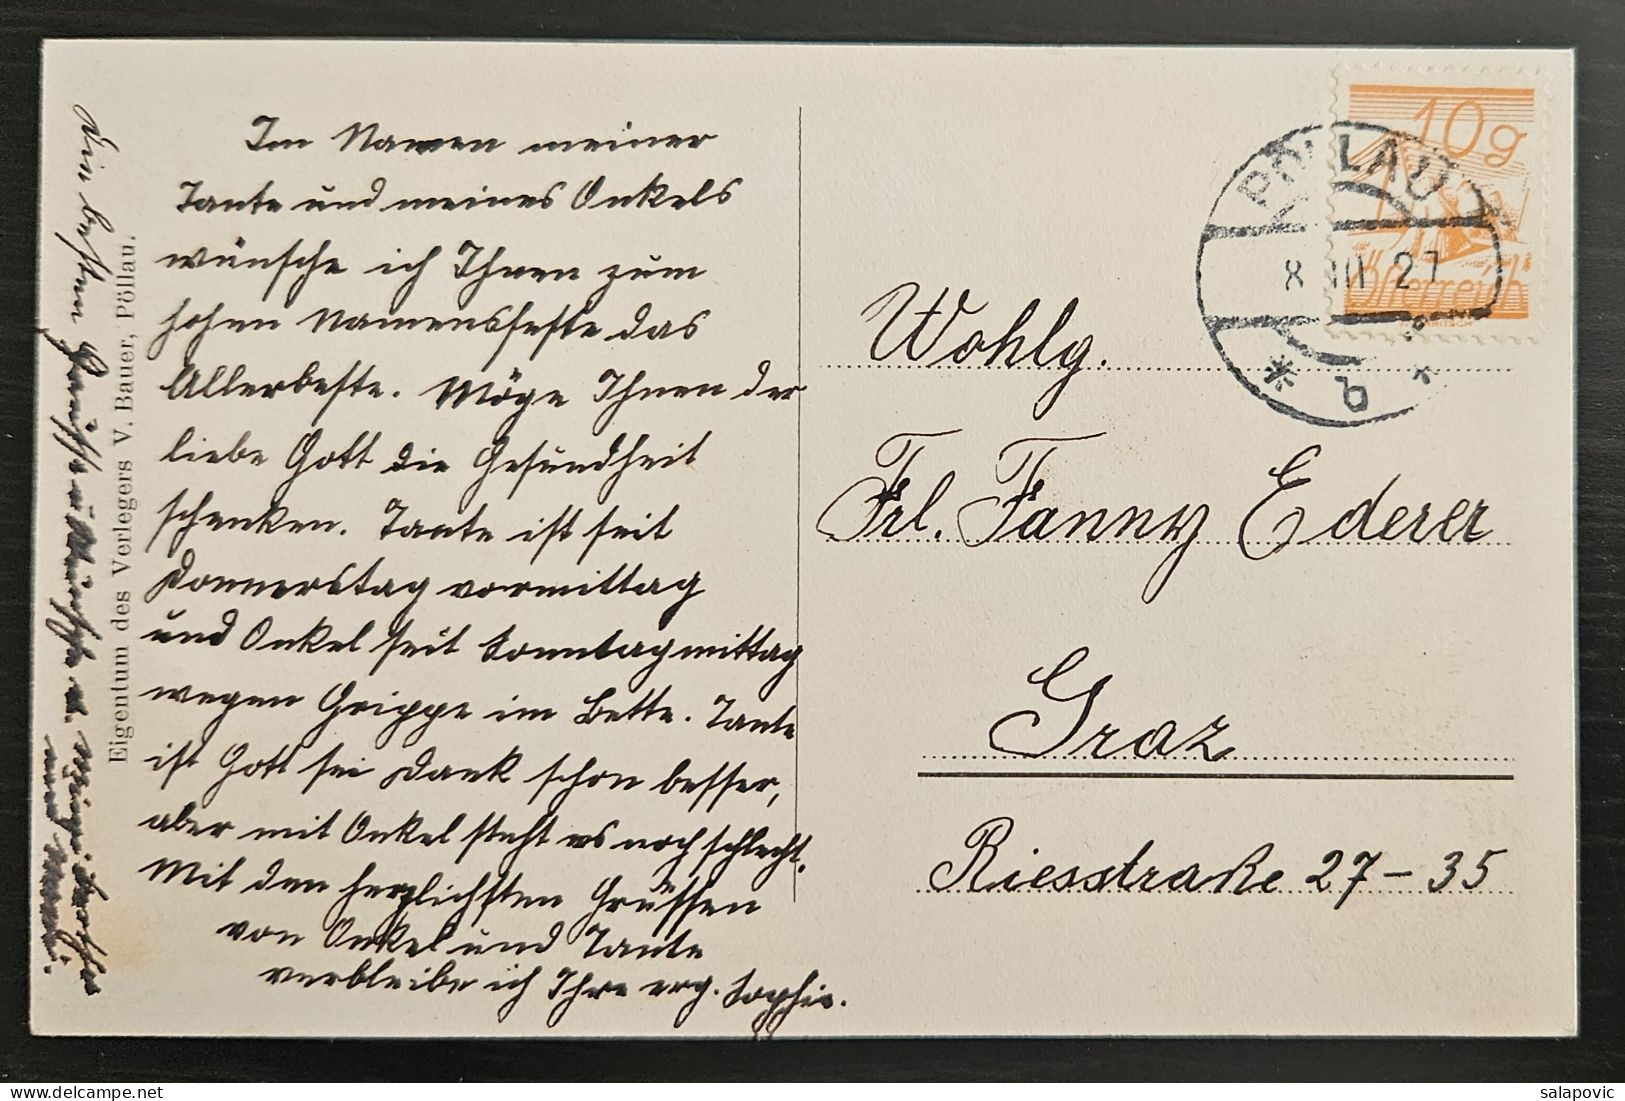 Im Namen meiner
Tante und meines Onkels
wünsche ich Ihnen zum
hohen Namensfeste das
Allerbeste. Möge Ihnen der
liebe Gott die Gesundheit
schenken. Tante ist seit
Donnerstag vormittag
und Onkel seit Sonntagmittag
wegen Grippe im Bette. Tante
ist Gott sei Dank schon besser,
aber mit Onkel steht es noch schlecht.
Mit den herzlichsten Grüssen
von Onkel und Tante
verbleibe ich Ihre erg. Sophie.
Die besten Grüsse u. Wünsche v.
Eigentum des Verlegers V. Bauer, Pöllau.
10g
Österreich
PÖLLAU
8 III 27
* b *
Wohlg.
Frl. Fanny Ederer
Graz
Riesstraße 27-35
salapovic